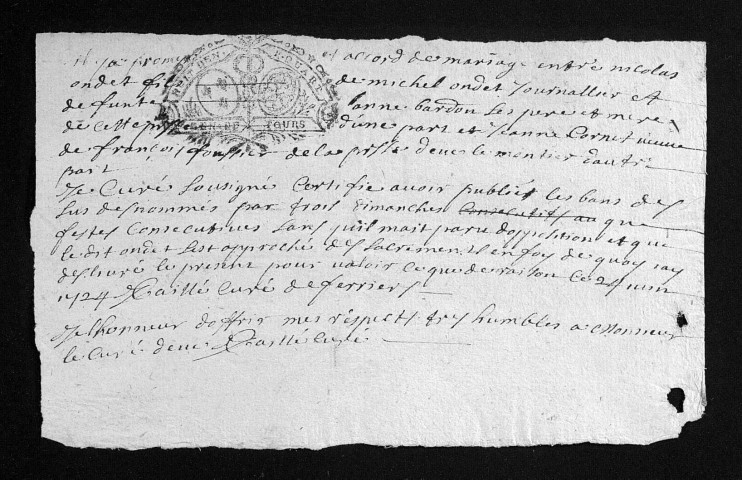 il ya prom et accord de mariage entre nicolas
ondet fil de michel ondet Journallier et
de funte Janne bardou ses pere et mere
de cette pss dune part et Jeanne Cornet veuve
de francois foussier de la psse deve le montier dautre
part
Je Curé Sousigné Certifie avoir publié les bans des
sus desnommés par trois dimanches Consecutifs au que
festes Consecutives sans quil mait paru dopposition et que
le dit ondet sest approché des sacremens En foy de quoy jay
deslivré le present pour valoir ce que de raison ce 24 juin
1724 Caillé Curé de ferriere
Je lhonneur doffrir mes respects tres humbles a Monsieur
le Curé deve Caillé Curé
GEN DE TOURS
QUART